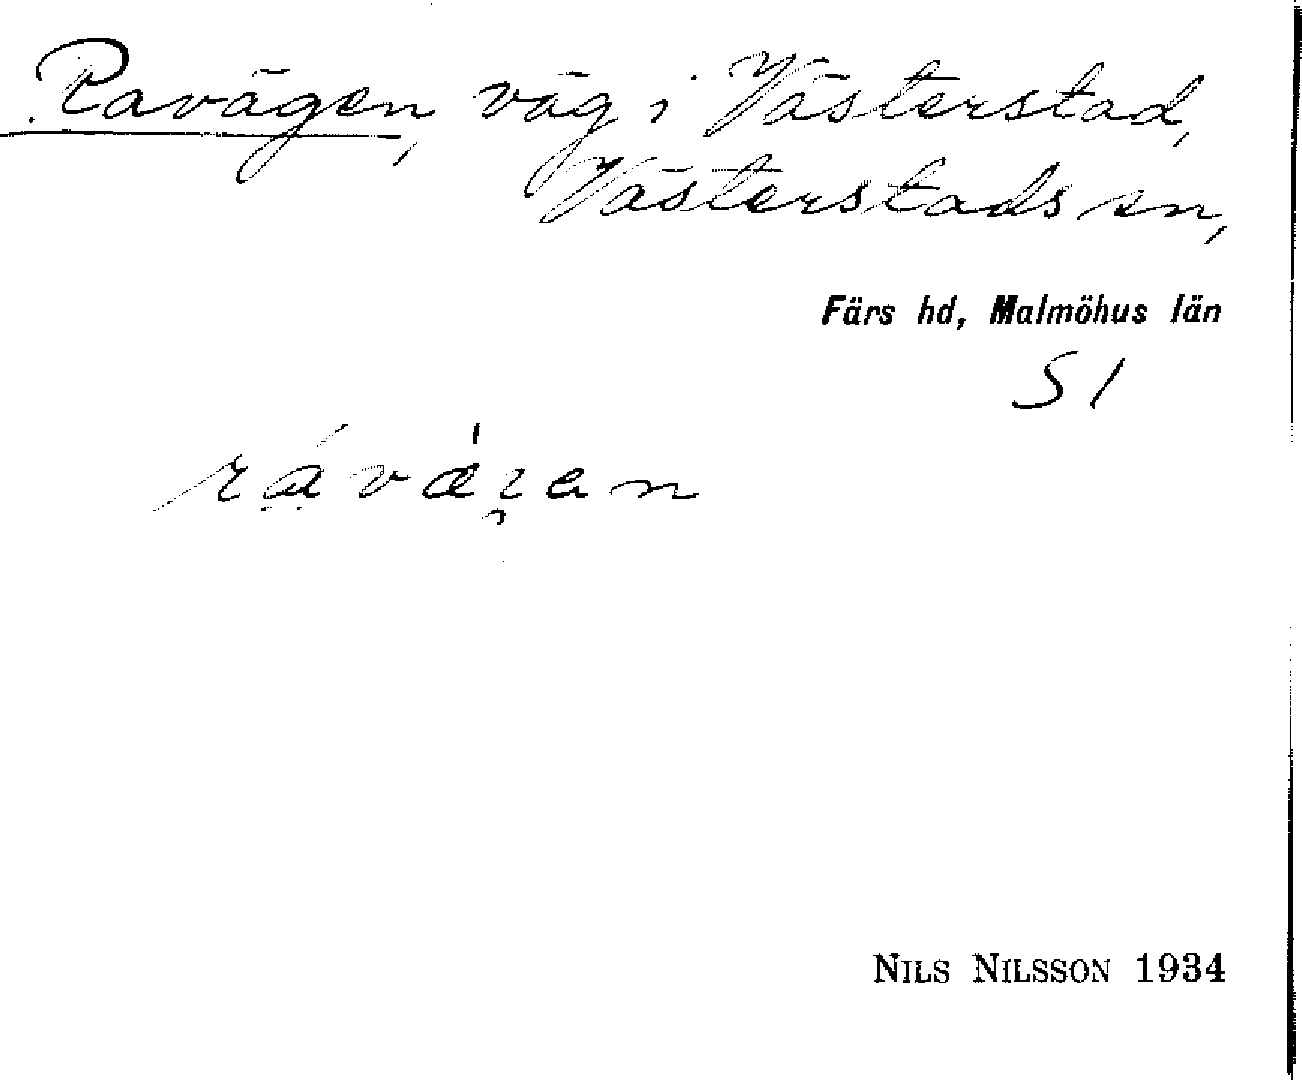 Ravägen, väg i Västerstad,
Västerstads sn,
Färs hd, Malmöhus län
S1
rávàʒen
NILS NILSSON 1934